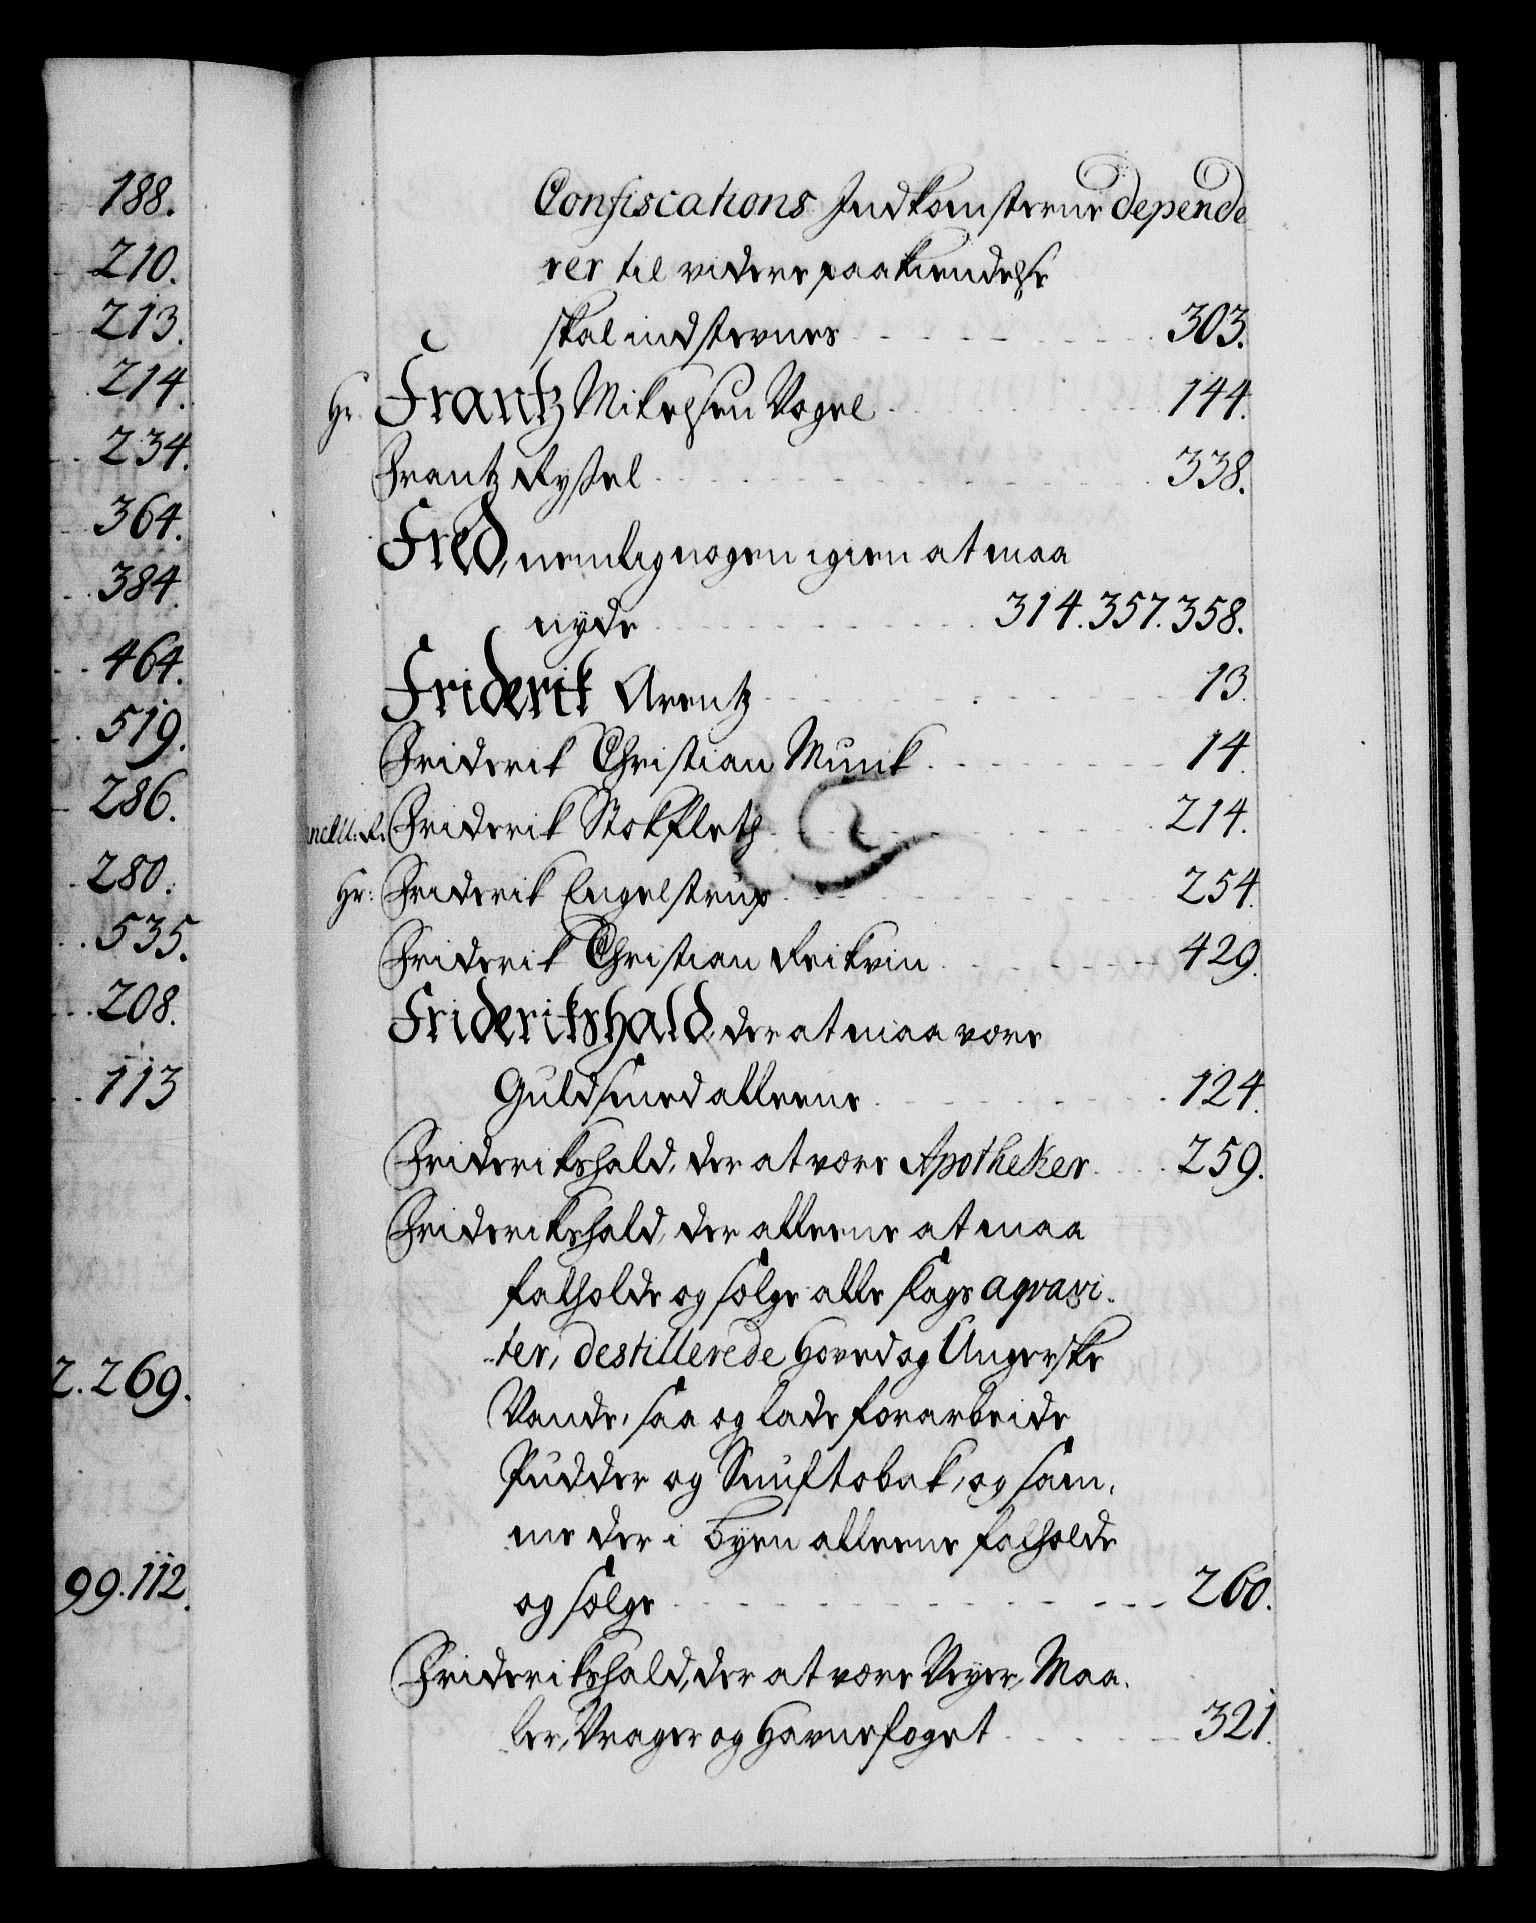 188.
210.
213.
214.
234.
364.
384.
464.
519.
286.
280.
535.
208.
113
2.269.
99.112.
Confiscations Indkomsterne depende
rer til videre paakiendelse
skal indstevnes 303.
Hr. Frantz Mikelsen Vogel 144.
Frantz Ryssel 338.
Fred, nemlig nogen igien at maa
nyde 314.357.358.
Friderik Arentz 13.
Friderik Christian Munk 14.
Friderik Stokfleth 214.
Hr: Friderik Engelstrup 254.
Friderik Christian Reikvin 429.
Friderikshald, der at maa være
Guldsmed alleene 124.
Friderikshald, der at være Apotheker 259.
Friderikshald, der alleene at maa
falholde og sælge alle slags aqvavi-
ter, destillerede Hoved og Ungerske
Vande, saa og lade forarbeide
Pudder og Snuftobak, og sam-
me der i Byen alleene falholde
og sælge 260.
Friderikshald, der at være Veyer, Maa-
ler, Vrager og Havnefoget 321.